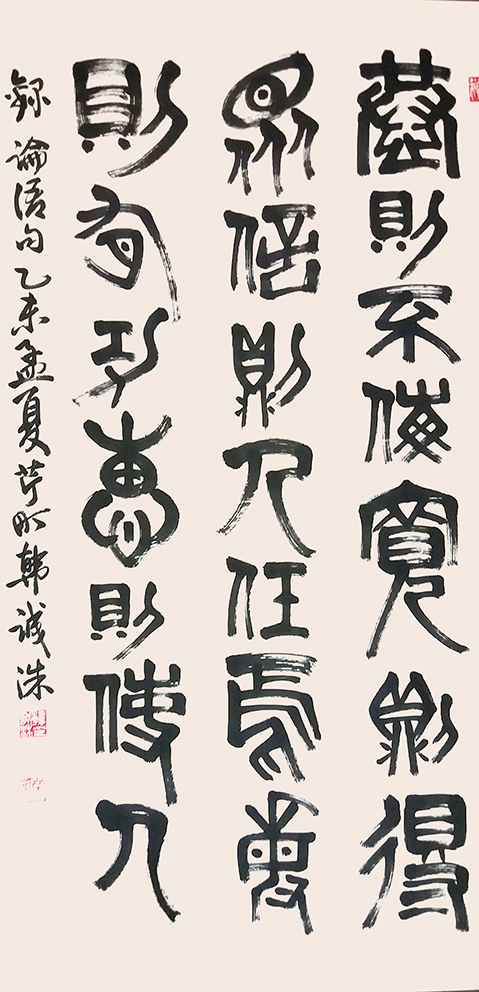 恭則不侮寬則得
眾信則人任焉敏
則有功惠則使人
錄論語句乙未孟夏韓誠洙